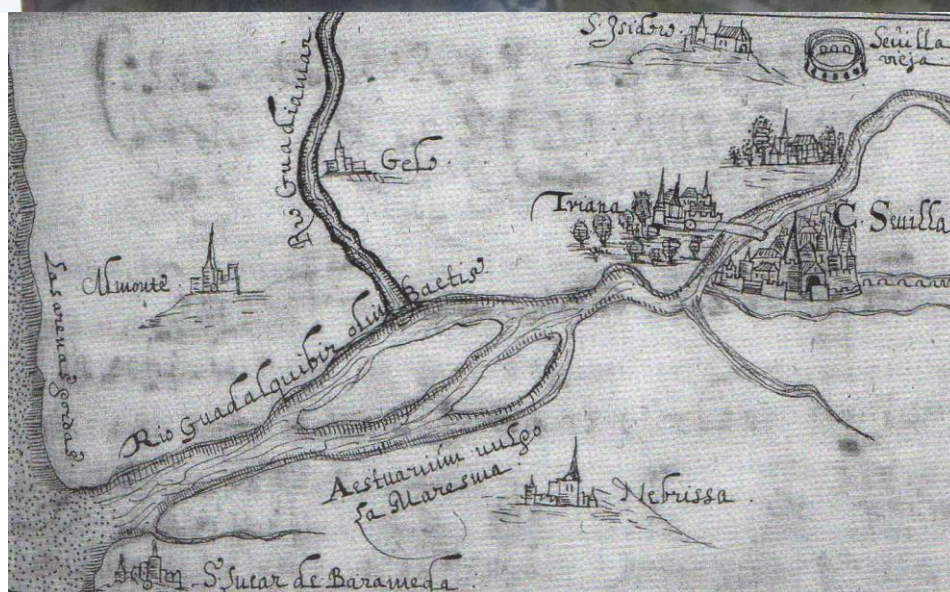 S. Isidro
Sevilla
vieja.
Rio Guadiamar
Gel.
Triana
C. Sevilla
Almonte.
Las arenas gordas.
Rio Guadalquibir olim Baetis.
Aestuarium vulgo
la Maresma.
Nebrissa.
S. Lucar de Barameda.